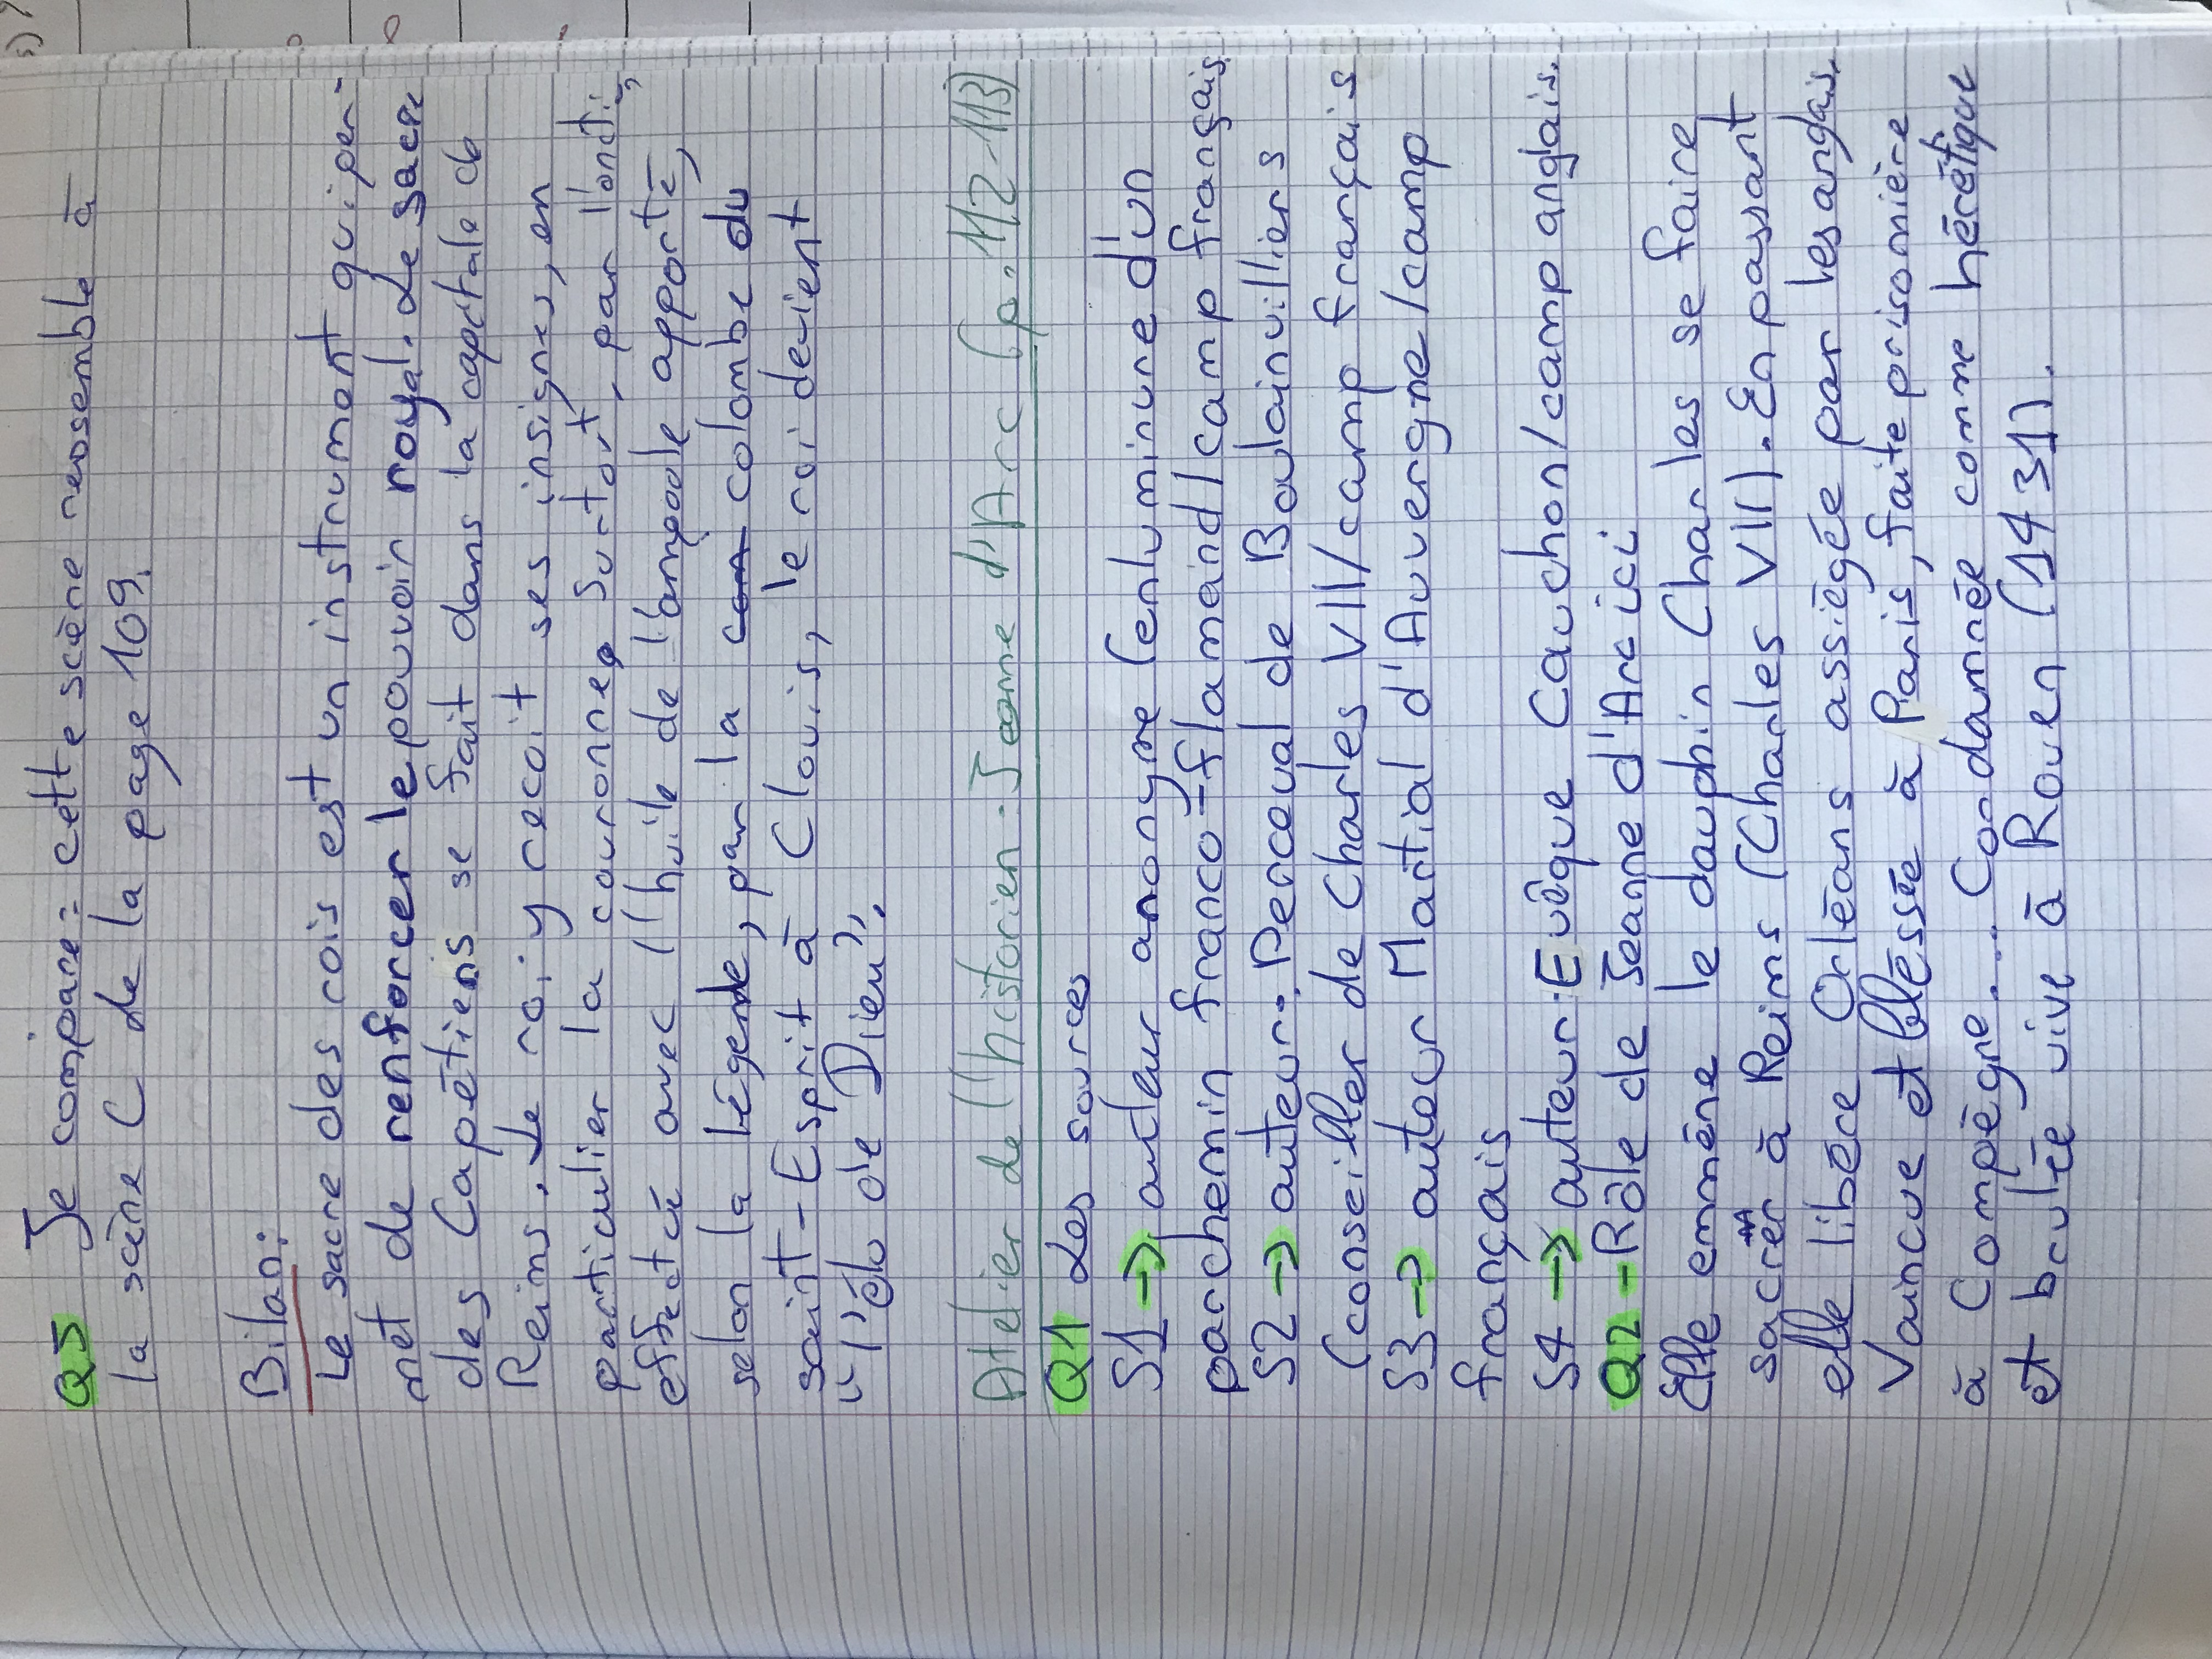 Q5 Je compare: cette scène ressemble à
la scène C de la page 109.
Bilan:
Le sacre des rois est un instrument qui per-
met de renforcer le pouvoir royal. Le sacre
des Capétiens se fait dans la capitale de
Reims. Le roi y recoit ses insignes, en
particulier la couronne, Surtout, par l'onction,
effectué avec l'huile de l'ampoule apporté,
selon la légende, par la colombe du
saint-Esprit à Clovis, le roi devient
"l'élu de Dieu".
Atelier de l'historien: Jeanne d'Arc (p.112-113)
Q1 Les sources
S1 → auteur anonyme (enluminure d'un
parchemin franco-flamand/camp français.
S2 → auteur: Perceval de Boulainvilliers
(conseiller de Charles VII/camp français
S3 → auteur Martial d'Auvergne/camp
français
S4 → auteur: Evêque Cauchon/camp anglais.
Q2 - Rôle de Jeanne d'Arc ici
Elle emmène le dauphin Charles se faire
sacrer à Reims (Charles VII). En passant
elle libère Orléans assiégée par les anglais.
Vaincue et blessée à Paris, faite prisonnière
à Compègne... Condamnée comme hérétique
et brulée vive à Rouen (1431).